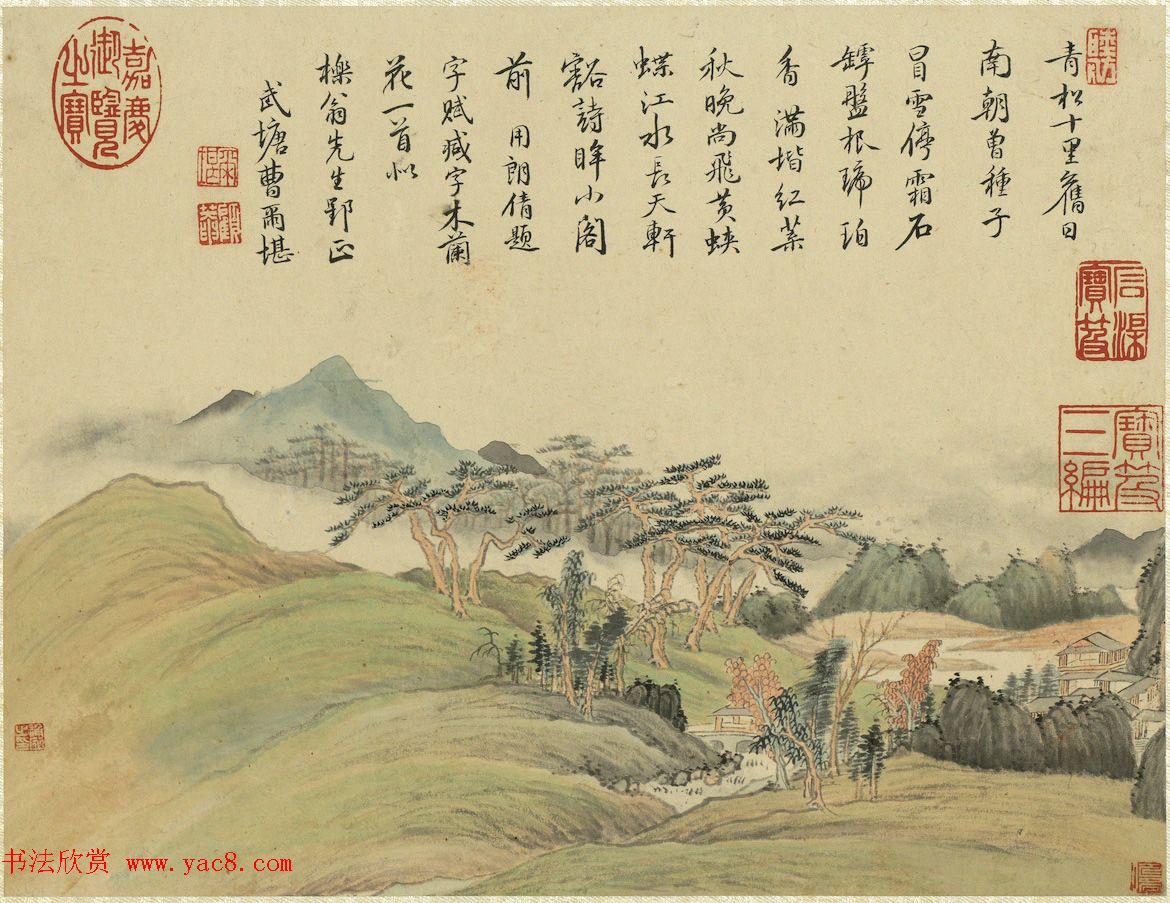 青松十里舊日
南朝曾種子
冒雪停霜石
罅盤根琥珀
香 滿堦紅葉
秋晚尚飛黃蛺
蝶江水長天軒
豁詩眸小閣
前 用朗倩題
字賦減字木蘭
花一首似
櫟翁先生郢正
武塘曹爾堪
顧菴
嘉慶御覽之寶
石渠寶笈
寶笈三編
书法欣赏 www.yac8.com